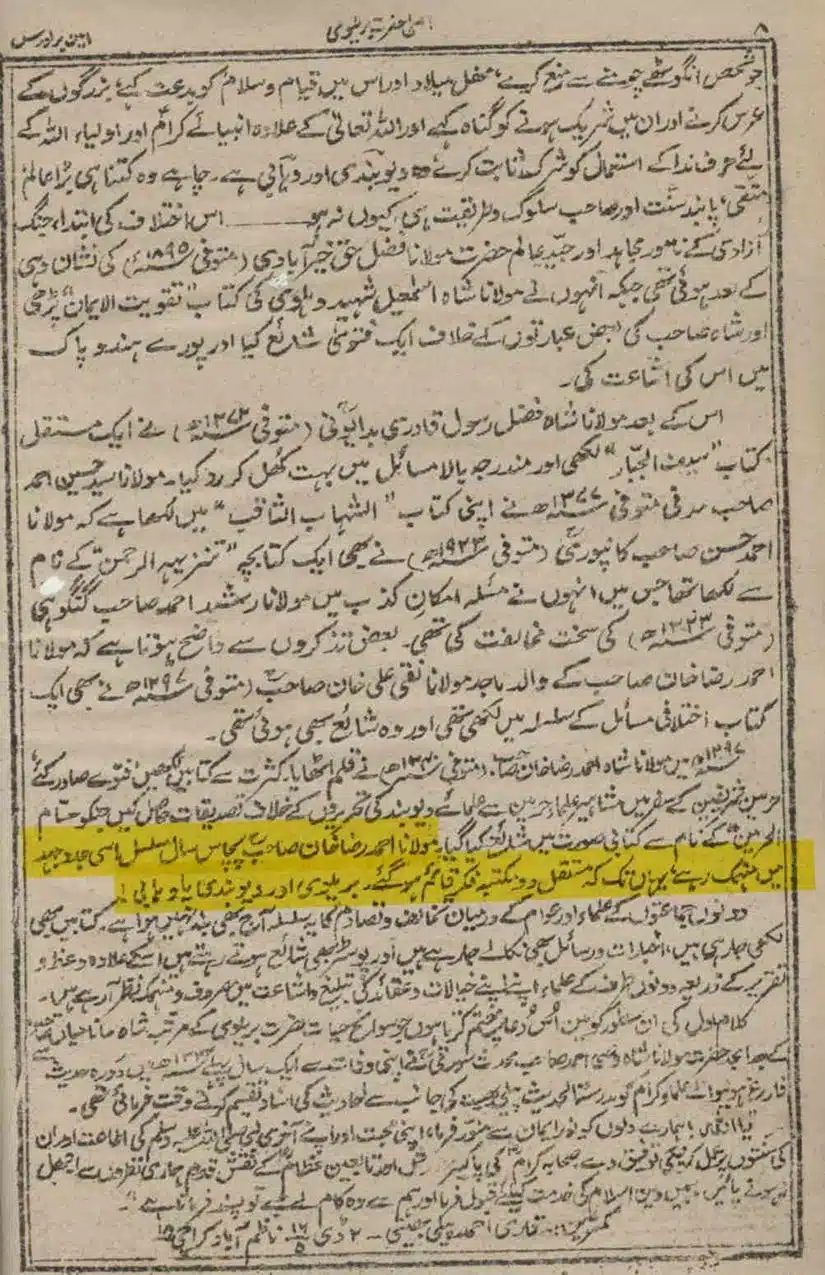 ۸
اعلیٰ حضرت بریلوی
امین برادرس
جو شخص انگوٹھے چومنے سے منع کرے، محفل میلاد اور اس میں قیام و سلام کو بدعت کہے، بزرگوں کے
عرس کرنے اور ان میں شریک ہونے کو گناہ کہے اور اللہ تعالیٰ کے علاوہ انبیائے کرام اور اولیاء اللہ کے
لئے حرف ندا کے استعمال کو شرک ثابت کرے وہ دیوبندی اور وہابی ہے۔ چاہے وہ کتنا ہی بڑا عالم
متقی، پابند سنت اور صاحب سلوک و طریقت ہی کیوں نہ ہو ـــــــ اس اختلاف کی ابتداء جنگ
آزادی کے نامور مجاہد اور جیّد عالم حضرت مولانا فضل حق خیرآبادی (متوفی ۱۸۹۵ء) کی نشان دہی
کے بعد ہوئی تھی جبکہ انہوں نے مولانا شاہ اسمٰعیل شہید دہلوی کی کتاب "تقویت الایمان" پڑھی
اور شاہ صاحب کی بعض عبارتوں کے خلاف ایک فتویٰ شائع کیا اور پورے ہند و پاک
میں اس کی اشاعت کی۔
اس کے بعد مولانا شاہ فضل رسول قادری بدایونی (متوفی ۱۳۷۲ھ) نے ایک مستقل
کتاب "سیف الجبّار" لکھی اور مندرجہ بالا مسائل میں بہت کھل کر رد کیا۔ مولانا سید حسین احمد
صاحب مدنی متوفی ۱۳۷۷ھ نے اپنی کتاب "الشہاب الثاقب" میں لکھا ہے کہ مولانا
احمد حسن صاحب کانپوری (متوفی ۱۹۲۳ء) نے بھی ایک کتابچہ "تنزیہہ الرحمن" کے نام
سے لکھا تھا جس میں انہوں نے مسئلہ امکان کذب میں مولانا رشید احمد صاحب گنگوہی
(متوفی ۱۳۲۳ھ) کی سخت مخالفت کی تھی۔ بعض تذکروں سے واضح ہوتا ہے کہ مولانا
احمد رضا خان صاحب کے والد ماجد مولانا نقی علی خان صاحب (متوفی ۱۲۹۷ھ) نے بھی ایک
کتاب اختلافی مسائل کے سلسلہ میں لکھی تھی اور وہ شائع بھی ہوئی تھی۔
۱۲۹۷ھ میں مولانا شاہ احمد رضا خان صاحب (متوفی ۱۳۴۰ھ) نے قلم اٹھایا، کثرت سے کتابیں لکھیں، فتوے صادر کئے
حرمین شریفین کے سفر میں مشاہیر علماء حرمین سے علمائے دیوبند کی تحریروں کے خلاف تصدیقات حاصل کیں جنکو حسام
الحرمین" کے نام سے کتابی صورت میں شائع کیا گیا۔ مولانا احمد رضا خان صاحب پچاس سال مسلسل اسی جدوجہد
میں منہمک رہے، یہاں تک کہ مستقل دو مکتبۂ فکر قائم ہو گئے۔ بریلوی اور دیوبندی یا وہابی!
دونوں جماعتوں کے علماء اور عوام کے درمیان تخالف و تصادم کا یہ سلسلہ آج بھی بند نہیں ہوا ہے۔ کتابیں بھی
لکھی جا رہی ہیں، اخبارات و رسائل بھی نکالے جا رہے ہیں اور پوسٹر بھی شائع ہوتے رہتے ہیں اسکے علاوہ وعظ و
تقریر کے ذریعہ دونوں طرف کے علماء اپنے اپنے خیالات و عقائد کی تبلیغ و اشاعت میں مصروف و منہمک نظر آ رہے ہیں۔
کلام اول کی ان سطور کو میں اُس دُعا پر ختم کرتا ہوں جو سوانح حیات حضرت بریلوی کے مرتب شاہ مانا میاں
کے جد امجد حضرت مولانا شاہ وصی احمد صاحب محدث سورتی نے اپنی وفات سے ایک سال پہلے ۱۳۳۳ھ میں دورہ حدیث سے
فارغ ہونیوالے علماء کرام کو مدرستہ الحدیث پیلی بھیت کی جانب سے احادیث کی اسناد تقسیم کرتے وقت فرمائی تھی۔
یا الٰہی! ہمارے دلوں کو نور ایمان سے منور فرما، اپنی محبت اور اپنے آخری نبی صلی اللہ علیہ وسلم کی اطاعت اور ان
کی سنتوں پر عمل کرنیکی توفیق دے، صحابہ کرام کی پاکیزہ روش اور تابعین عظام کے نقش قدم ہماری نظروں سے اوجھل
نہ ہونے پائیں، ہمیں دین اسلام کی خدمت کیلئے قبول فرما اور ہم سے وہ کام لے جسے تو پسند فرماتا ہے"۔
کمترین:۔ قاری احمد پیلی بھیتی۔ ۲ ڈی ۱۶/۵ ناظم آباد کراچی ۱۸